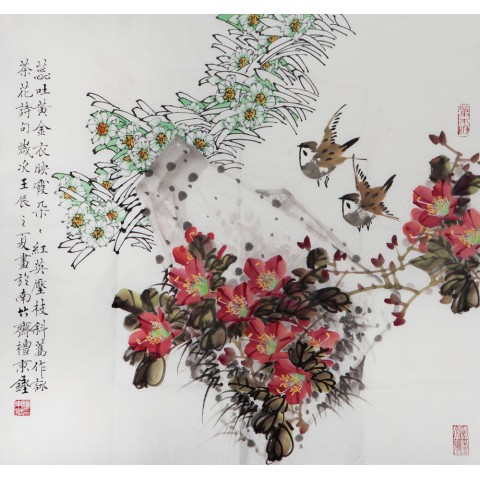 蕊吐黃金衣映霞朵〻紅英壓枝斜舊作詠
茶花詩句歲次壬辰之夏畫於南竹齋禮東